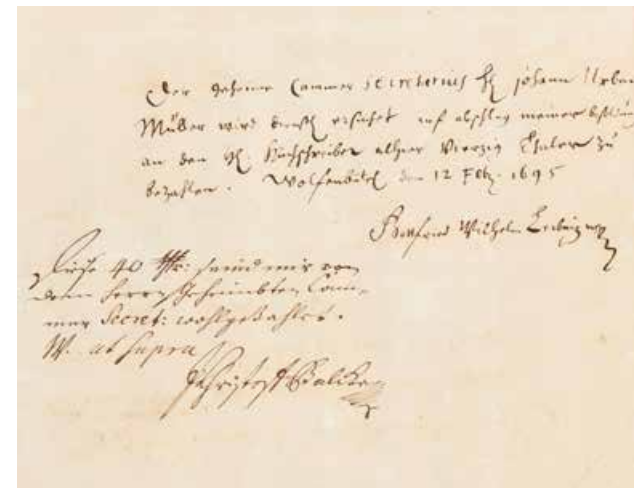 Der Geheime Cammer Secretarius H. Johann Urban
Müller wird dienstl. ersuchet auf abschlag meiner
an den H. Buchschreiber alhier Vierzig Thaler zu
bezahlen. Wolfenbütel den 12 Feb. 1695
Gottfried Wilhelm Leibniz mp
Diese 40 Thr: seind mir von
dem Herrn Geheimbten Cam-
mer Secret: wohl gezahlet.
W. ut supra
Christoff Balcke